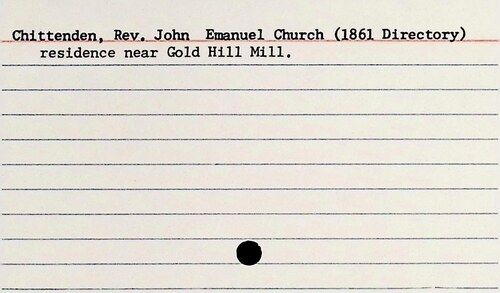 Chittenden, Rev. John Emanuel Church (1861 Directory)
residence near Gold Hill Mill.